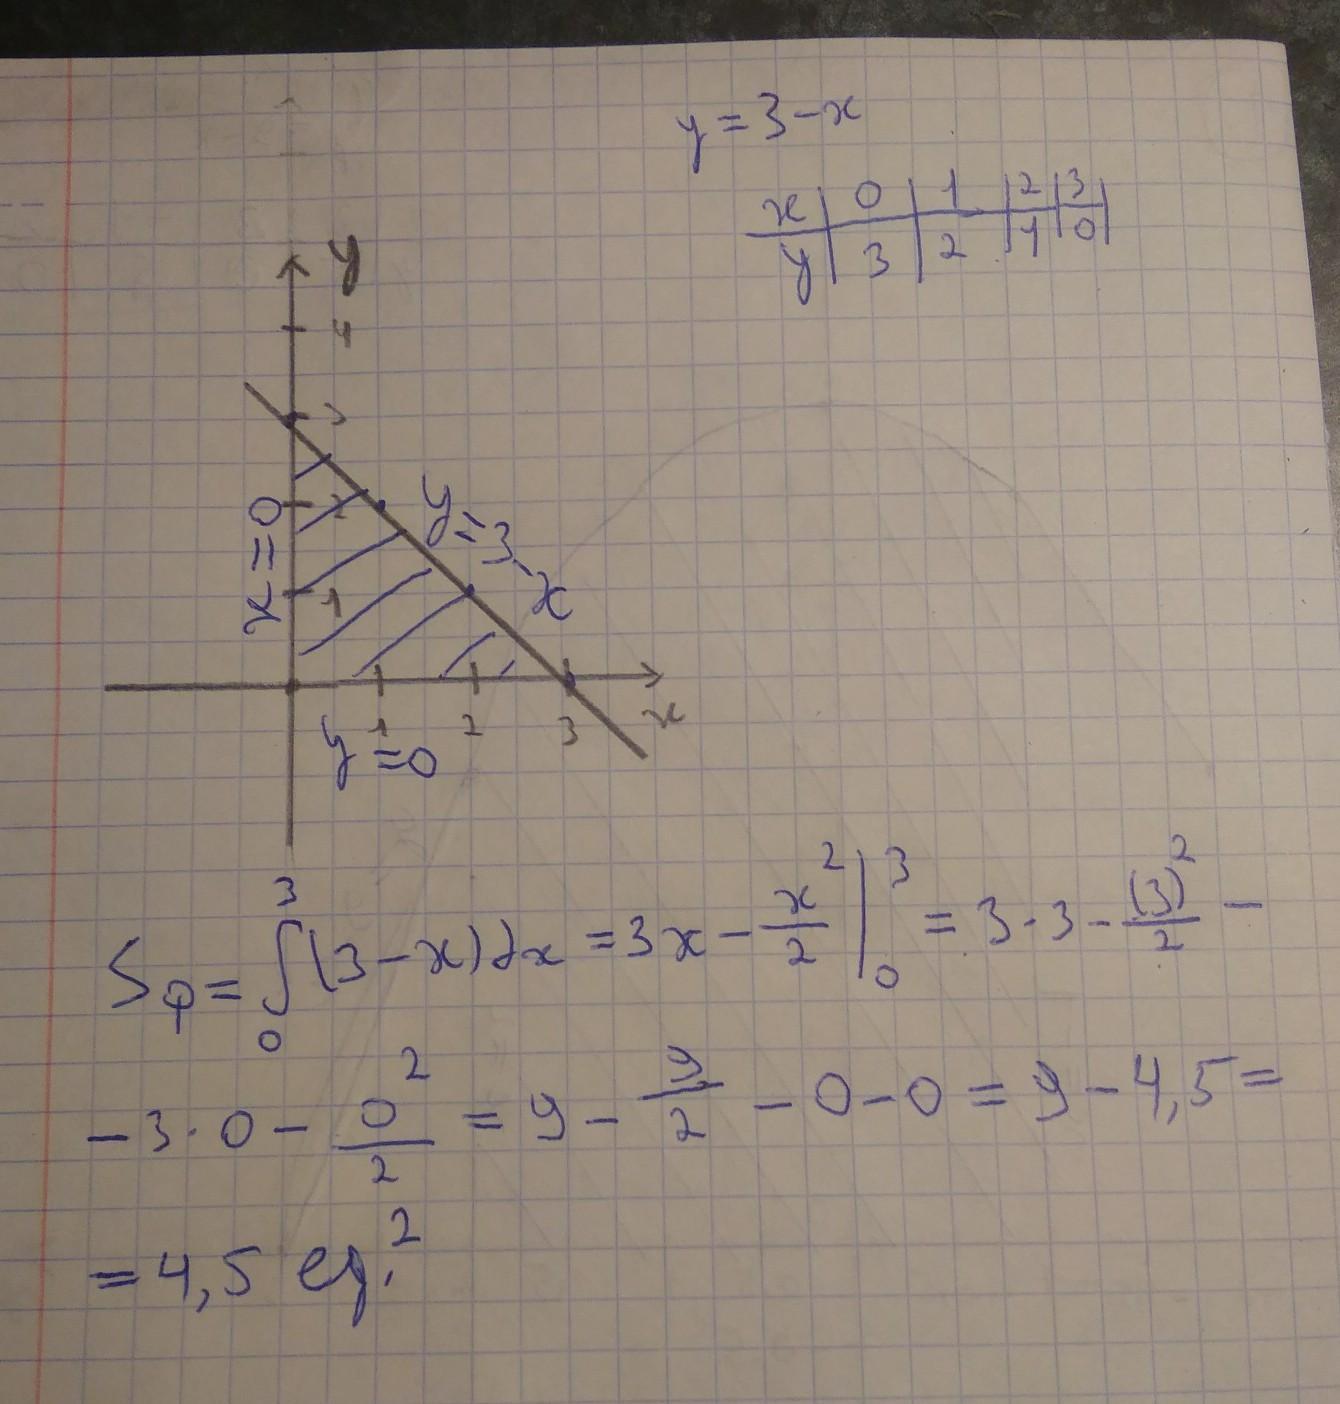 y = 3 - x
x | 0 | 1 | 2 | 3
y | 3 | 2 | 1 | 0
y
4
3
2
1
x = 0
y = 3 - x
1 2 3 x
y = 0
Sф = ∫₀³ (3 - x) dx = 3x - x²/2 |₀³ = 3 · 3 - (3)²/2 -
- 3 · 0 - 0²/2 = 9 - 9/2 - 0 - 0 = 9 - 4,5 =
= 4,5 ед.²